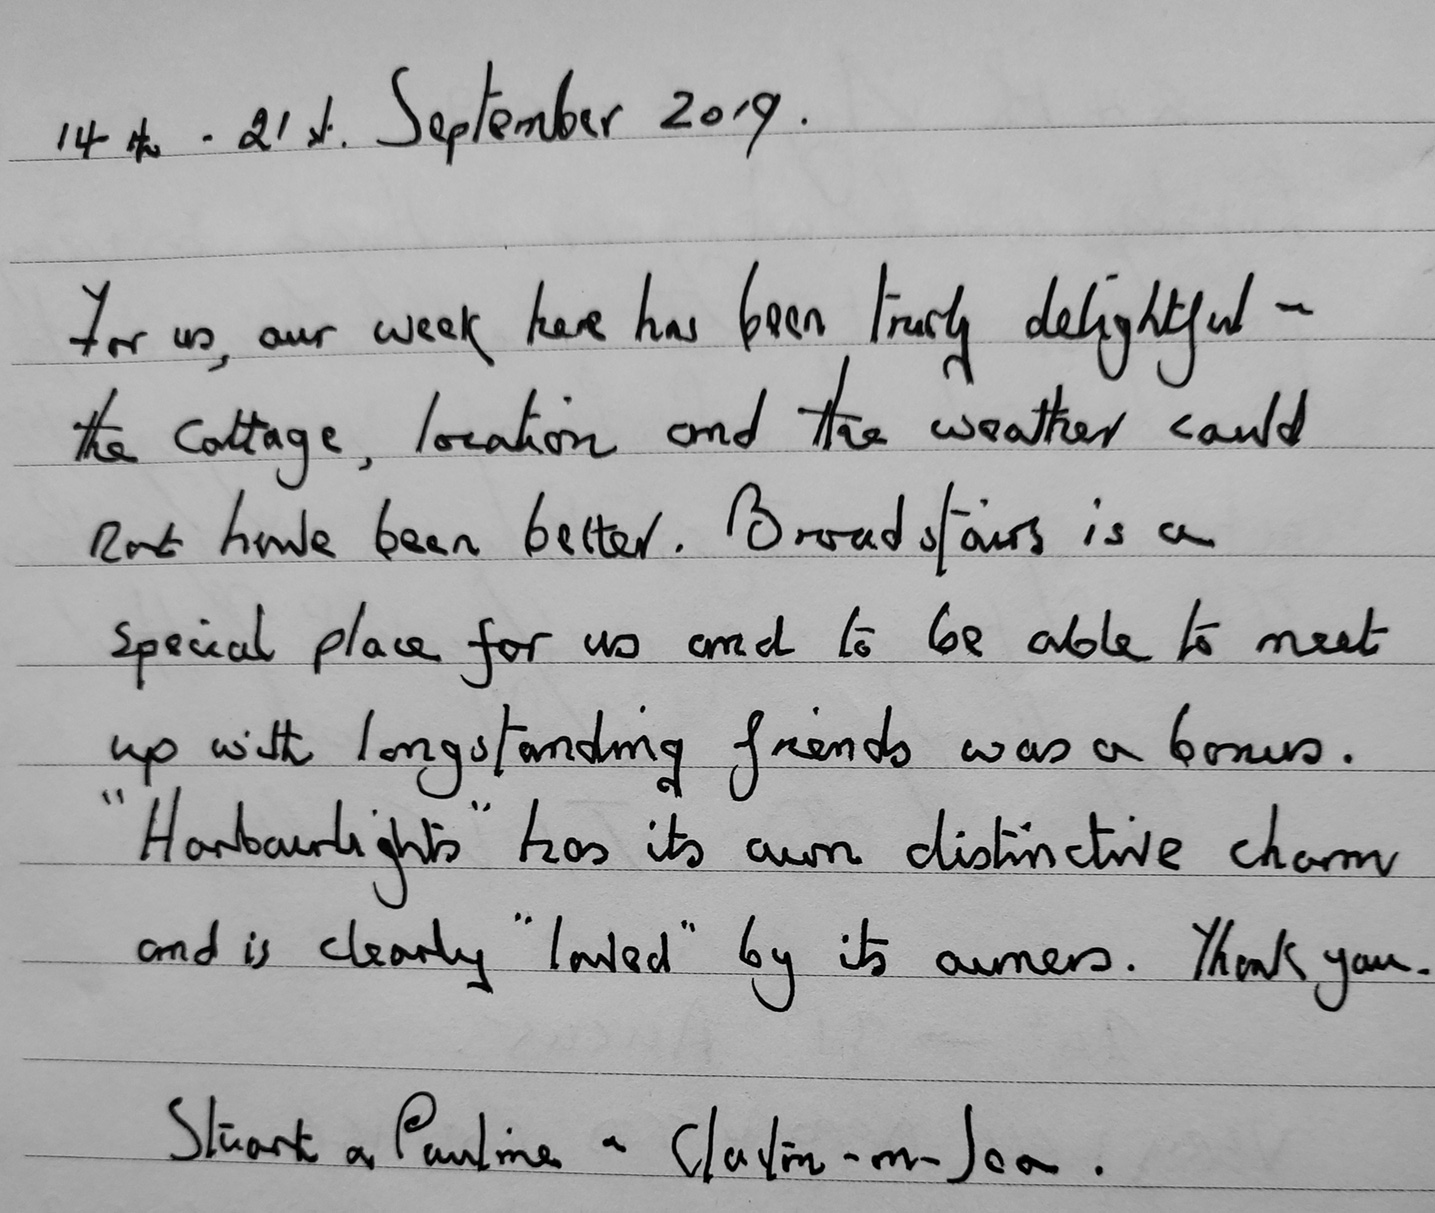 14th - 21st. September 2019.
For us, our week here has been truly delightful -
the cottage, location and the weather could
not have been better. Broadstairs is a
special place for us and to be able to meet
up with longstanding friends was a bonus.
"Harbourlights" has its own distinctive charm
and is clearly "loved" by its owners. Thank you.
Stuart & Pauline - Clacton-on-Sea.